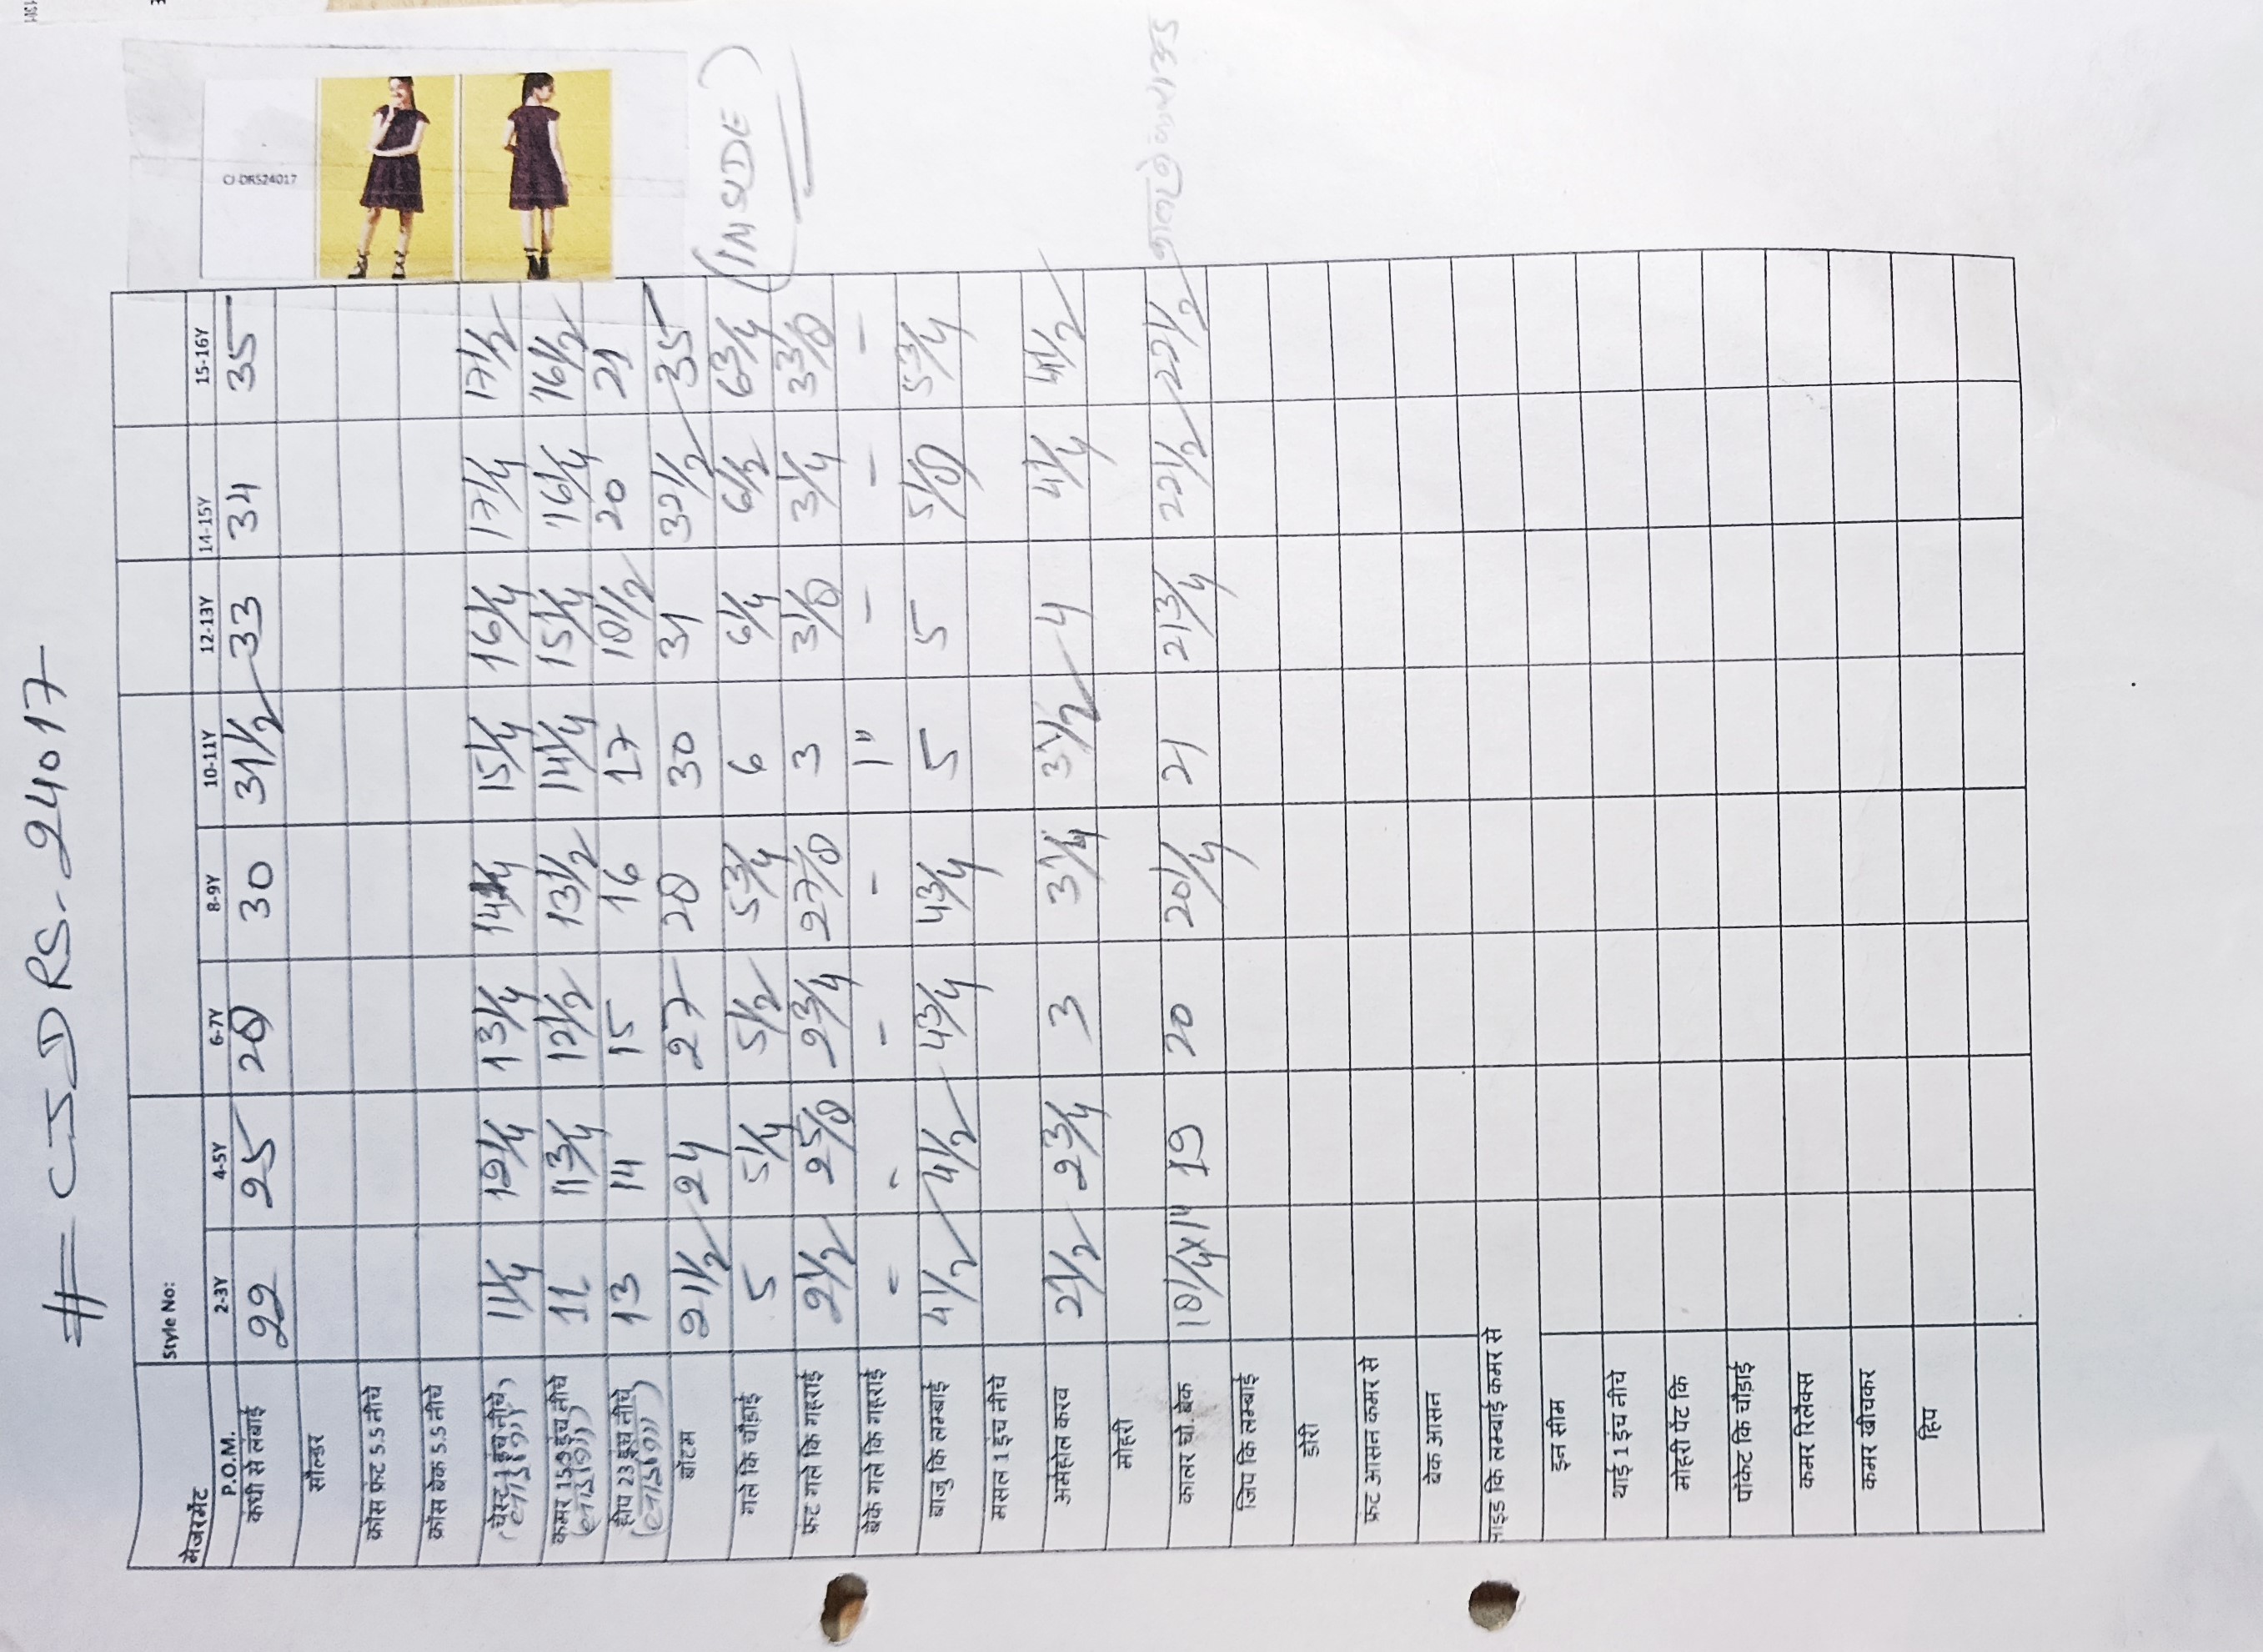 # CJDRS-24017
CJ-DRS24017
Style No:
मेजरमेंट
P.O.M. 2-3Y 4-5Y 6-7Y 8-9Y 10-11Y 12-13Y 14-15Y 15-16Y
कंधी से लंबाई 22 25 28 30 31 1/2 33 34 35
सौल्डर
क्रॉस फ्रंट 5.5 नीचे
क्रॉस बेक 5.5 नीचे
चेस्ट 1 इंच नीचे 11 1/4 12 1/4 13 1/4 14 1/4 15 1/4 16 1/4 17 1/4 17 1/2
कमर 15.9 इंच नीचे 11 11 3/4 12 1/2 13 1/2 14 1/4 15 1/4 16 1/4 16 1/2
हीप 23 इंच नीचे 13 14 15 16 17 18 1/2 20 21
बॉटम 21 1/2 24 27 28 30 31 32 1/2 35
गले कि चौड़ाई 5 5 1/4 5 1/2 5 3/4 6 6 1/4 6 1/2 6 3/4 (INSIDE)
फ्रंट गले कि गहराई 2 1/2 2 5/8 2 3/4 2 7/8 3 3 1/8 3 1/4 3 3/8
बेके गले कि गहराई - - - - 1" - - -
बाजु कि लम्बाई 4 1/2 4 1/2 4 3/4 4 3/4 5 5 5 1/8 5 3/4
मसल 1 इंच नीचे
अर्महोल करव 2 1/2 2 3/4 3 3 1/4 3 1/2 4 4 1/4 4 1/2
मोहरी
कालर चो. बेक 18 1/4 x 1" 19 20 20 1/4 21 21 3/4 22 1/2 22 1/2
जिप कि लम्बाई
डोरी
फ्रंट आसन कमर से
बेक आसन
साइड कि लम्बाई कमर से
इन सीम
थाई 1 इंच नीचे
मोहरी पेंट कि
पॉकेट कि चौड़ाई
कमर रिलैक्स
कमर खीचकर
हिप